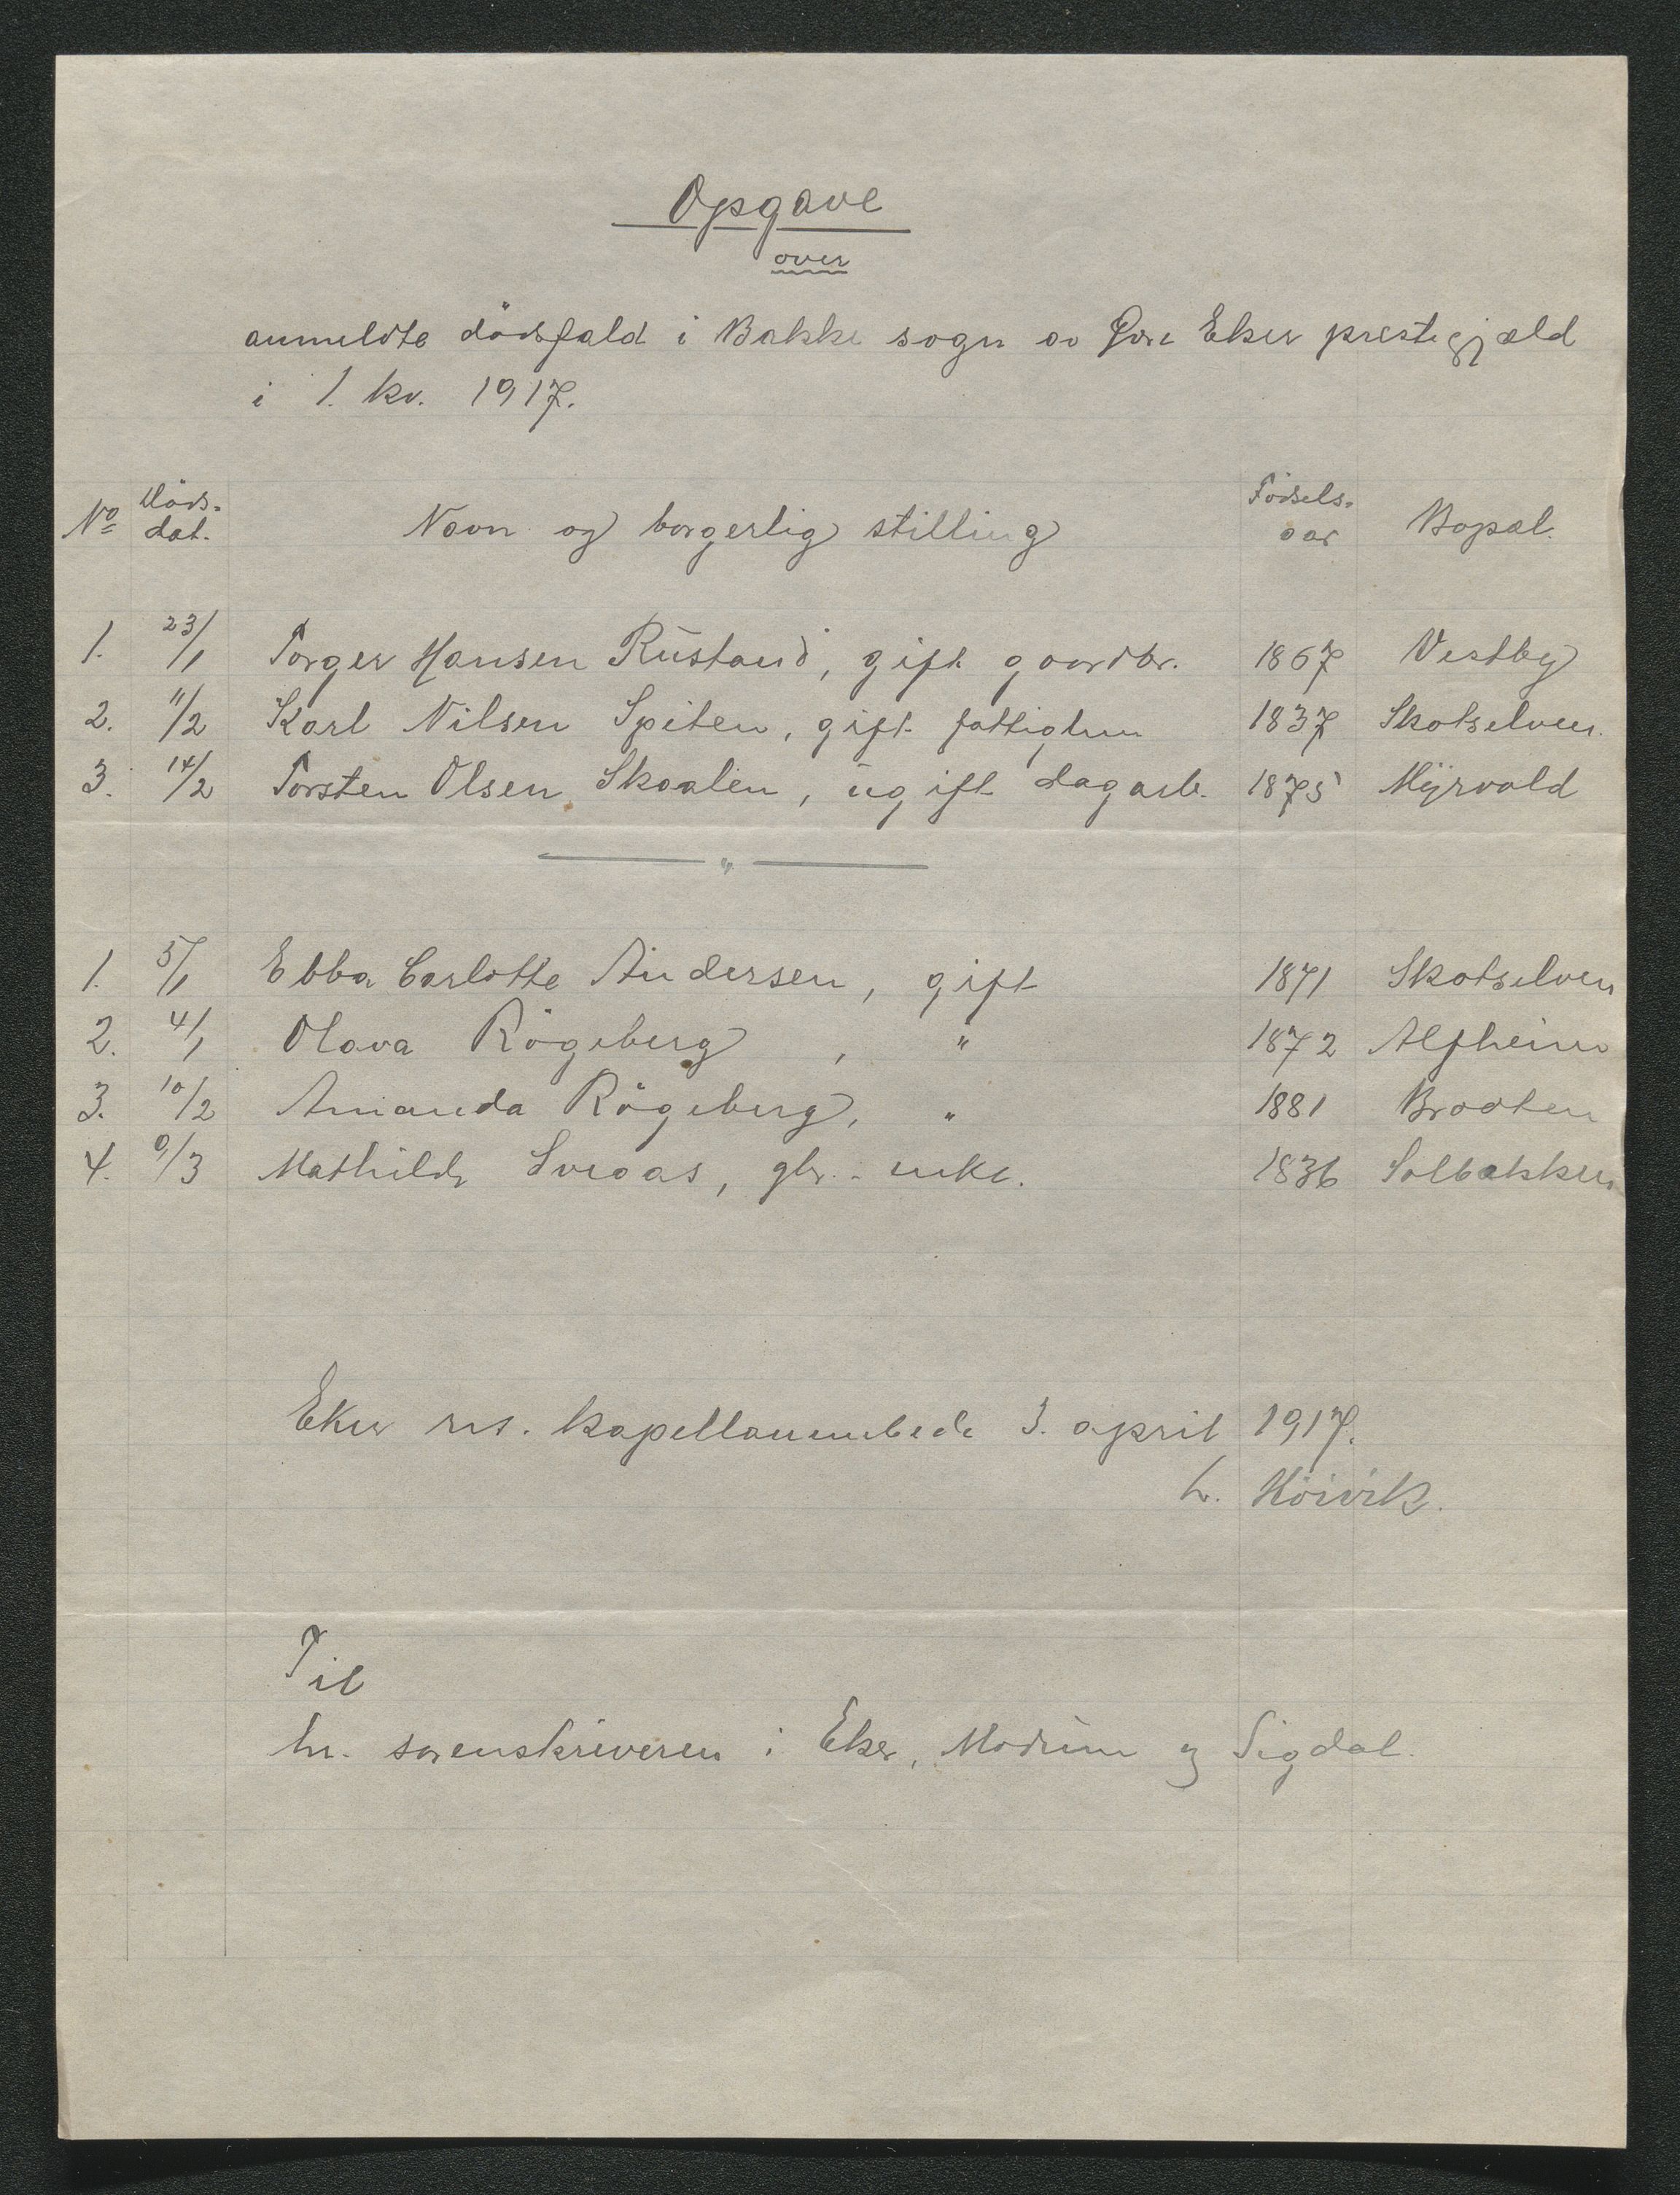 Opgave
over
anmeldte dödsfald i Bakke sogn av Övre Eker prestegjæld
i 1. kv. 1917.
No Döds-dat. Navn og borgerlig stilling Födsels-aar Bopæl.
1. 23/1 Torger Hansen Rustand, gift gaardbr. 1867 Vestby
2. 11/2 Karl Nilsen Spiten, gift fattiglem 1837 Skotselven.
3. 14/2 Torsten Olsen Skaalen, ugift dagarb. 1875 Myrvold
1. 5/1 Ebba Carlotte Andersen, gift 1871 Skotselven
2. 4/1 Olava Rögeberg, " 1872 Alfheim
3. 10/2 Amanda Rögeberg, " 1881 Braaten
4. 9/3 Mathilde gbr.-enke. 1836 Solbakken
Eker res. kapellanembede 3. april 1917.
L. Höivik.
Til
hr. sorenskriveren i Eker, Modum og Sigdal.